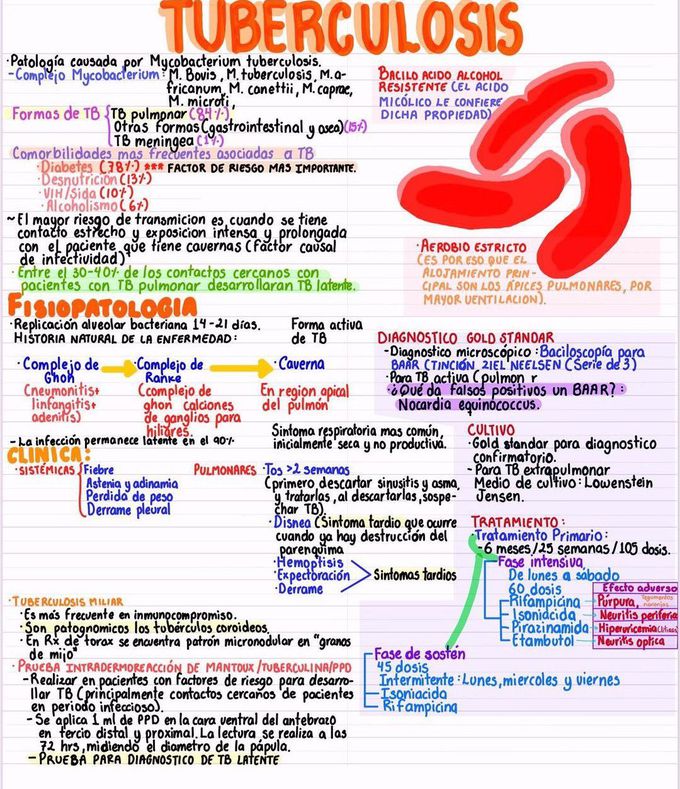 TUBERCULOSIS
·Patología causada por Mycobacterium tuberculosis.
-Complejo Mycobacterium: M. Bovis, M. tuberculosis, M. a-
fricanum, M. canettii, M. caprae,
M. microti,
Formas de TB { TB pulmonar (84%)
Otras formas (gastrointestinal y osea) (15%)
TB meningea (1%)
Comorbilidades mas frecuentes asociadas a TB
·Diabetes (38%) *** FACTOR DE RIESGO MAS IMPORTANTE.
·Desnutrición (13%)
·VIH/Sida (10%)
·Alcoholismo (6%)
~El mayor riesgo de transmicion es cuando se tiene
contacto estrecho y exposicion intensa y prolongada
con el paciente que tiene cavernas (factor causal
de infectividad)
·Entre el 30-40% de los contactos cercanos con
pacientes con TB pulmonar desarrollaran TB latente.
BACILO ACIDO ALCOHOL
RESISTENTE (EL ACIDO
MICÓLICO LE CONFIERE
DICHA PROPIEDAD)
·AEROBIO ESTRICTO
(ES POR ESO QUE EL
ALOJAMIENTO PRIN-
CIPAL SON LOS ÁPICES PULMONARES, POR
MAYOR VENTILACION).
FISIOPATOLOGIA
·Replicación alveolar bacteriana 14-21 días.
HISTORIA NATURAL DE LA ENFERMEDAD:
Forma activa
de TB
·Complejo de
Ghon
Cneumonitis+
linfangitis+
adenitis)
·Complejo de
Ranke
(complejo de
ghon calciones
de ganglios para
hiliares.
·Caverna
En region apical
del pulmón
- La infección permanece latente en el 90%
DIAGNOSTICO GOLD STANDAR
-Diagnostico microscópico: Baciloscopía para
BAAR (TINCIÓN ZIEL NEELSEN (Serie de 3)
·Para TB activa (pulmon r
·¿Qué da falsos positivos un BAAR?:
Nocardia equinococcus.
CLINICA:
·SISTÉMICAS { Fiebre
Astenia y adinamia
Perdida de peso
Derrame pleural
Sintoma respiratoria mas común,
inicialmente seca y no productiva.
PULMONARES ·Tos >2 semanas
(primero descartar sinusitis y asma,
y tratarlas, al descartarlas, sospe-
char TB).
·Disnea (Sintoma tardio que ocurre
cuando ya hay destrucción del
parenquima
·Hemoptisis
·Expectoración
·Derrame
Sintomas tardios
CULTIVO
·Gold standar para diagnostico
confirmatorio.
-Para TB extrapulmonar
Medio de cultivo: Lowenstein
Jensen.
TRATAMIENTO:
·Tratamiento Primario:
-6 meses/25 semanas/105 dosis.
Fase intensiva
De lunes a sábado
60 dosis
Rifampicina
Isoniacida
Pirazinamida
Etambutol
Efecto adverso
Púrpura,
Neuritis periferia
Hiperuricemia
Neuritis optica
Fase de sostén
45 dosis
Intermitente: Lunes, miercoles y viernes
Isoniacida
Rifampicina
·TUBERCULOSIS MILIAR
·Es más frecuente en inmunocompromiso.
·Son patognomicos los tubérculos coroideos,
·En Rx de torax se encuentra patrón micronodular en "granos
de mijo"
·PRUEBA INTRADERMOREACCIÓN DE MANTOUX/TUBERCULINA/PPD
-Realizar en pacientes con factores de riesgo para desarro-
llar TB (principalmente contactos cercanos de pacientes
en periodo infeccioso).
-Se aplica 1 ml de PPD en la cara ventral del antebrazo
en tercio distal y proximal. La lectura se realiza a las
72 hrs, midiendo el diametro de la pápula.
- PRUEBA PARA DIAGNOSTICO DE TB LATENTE